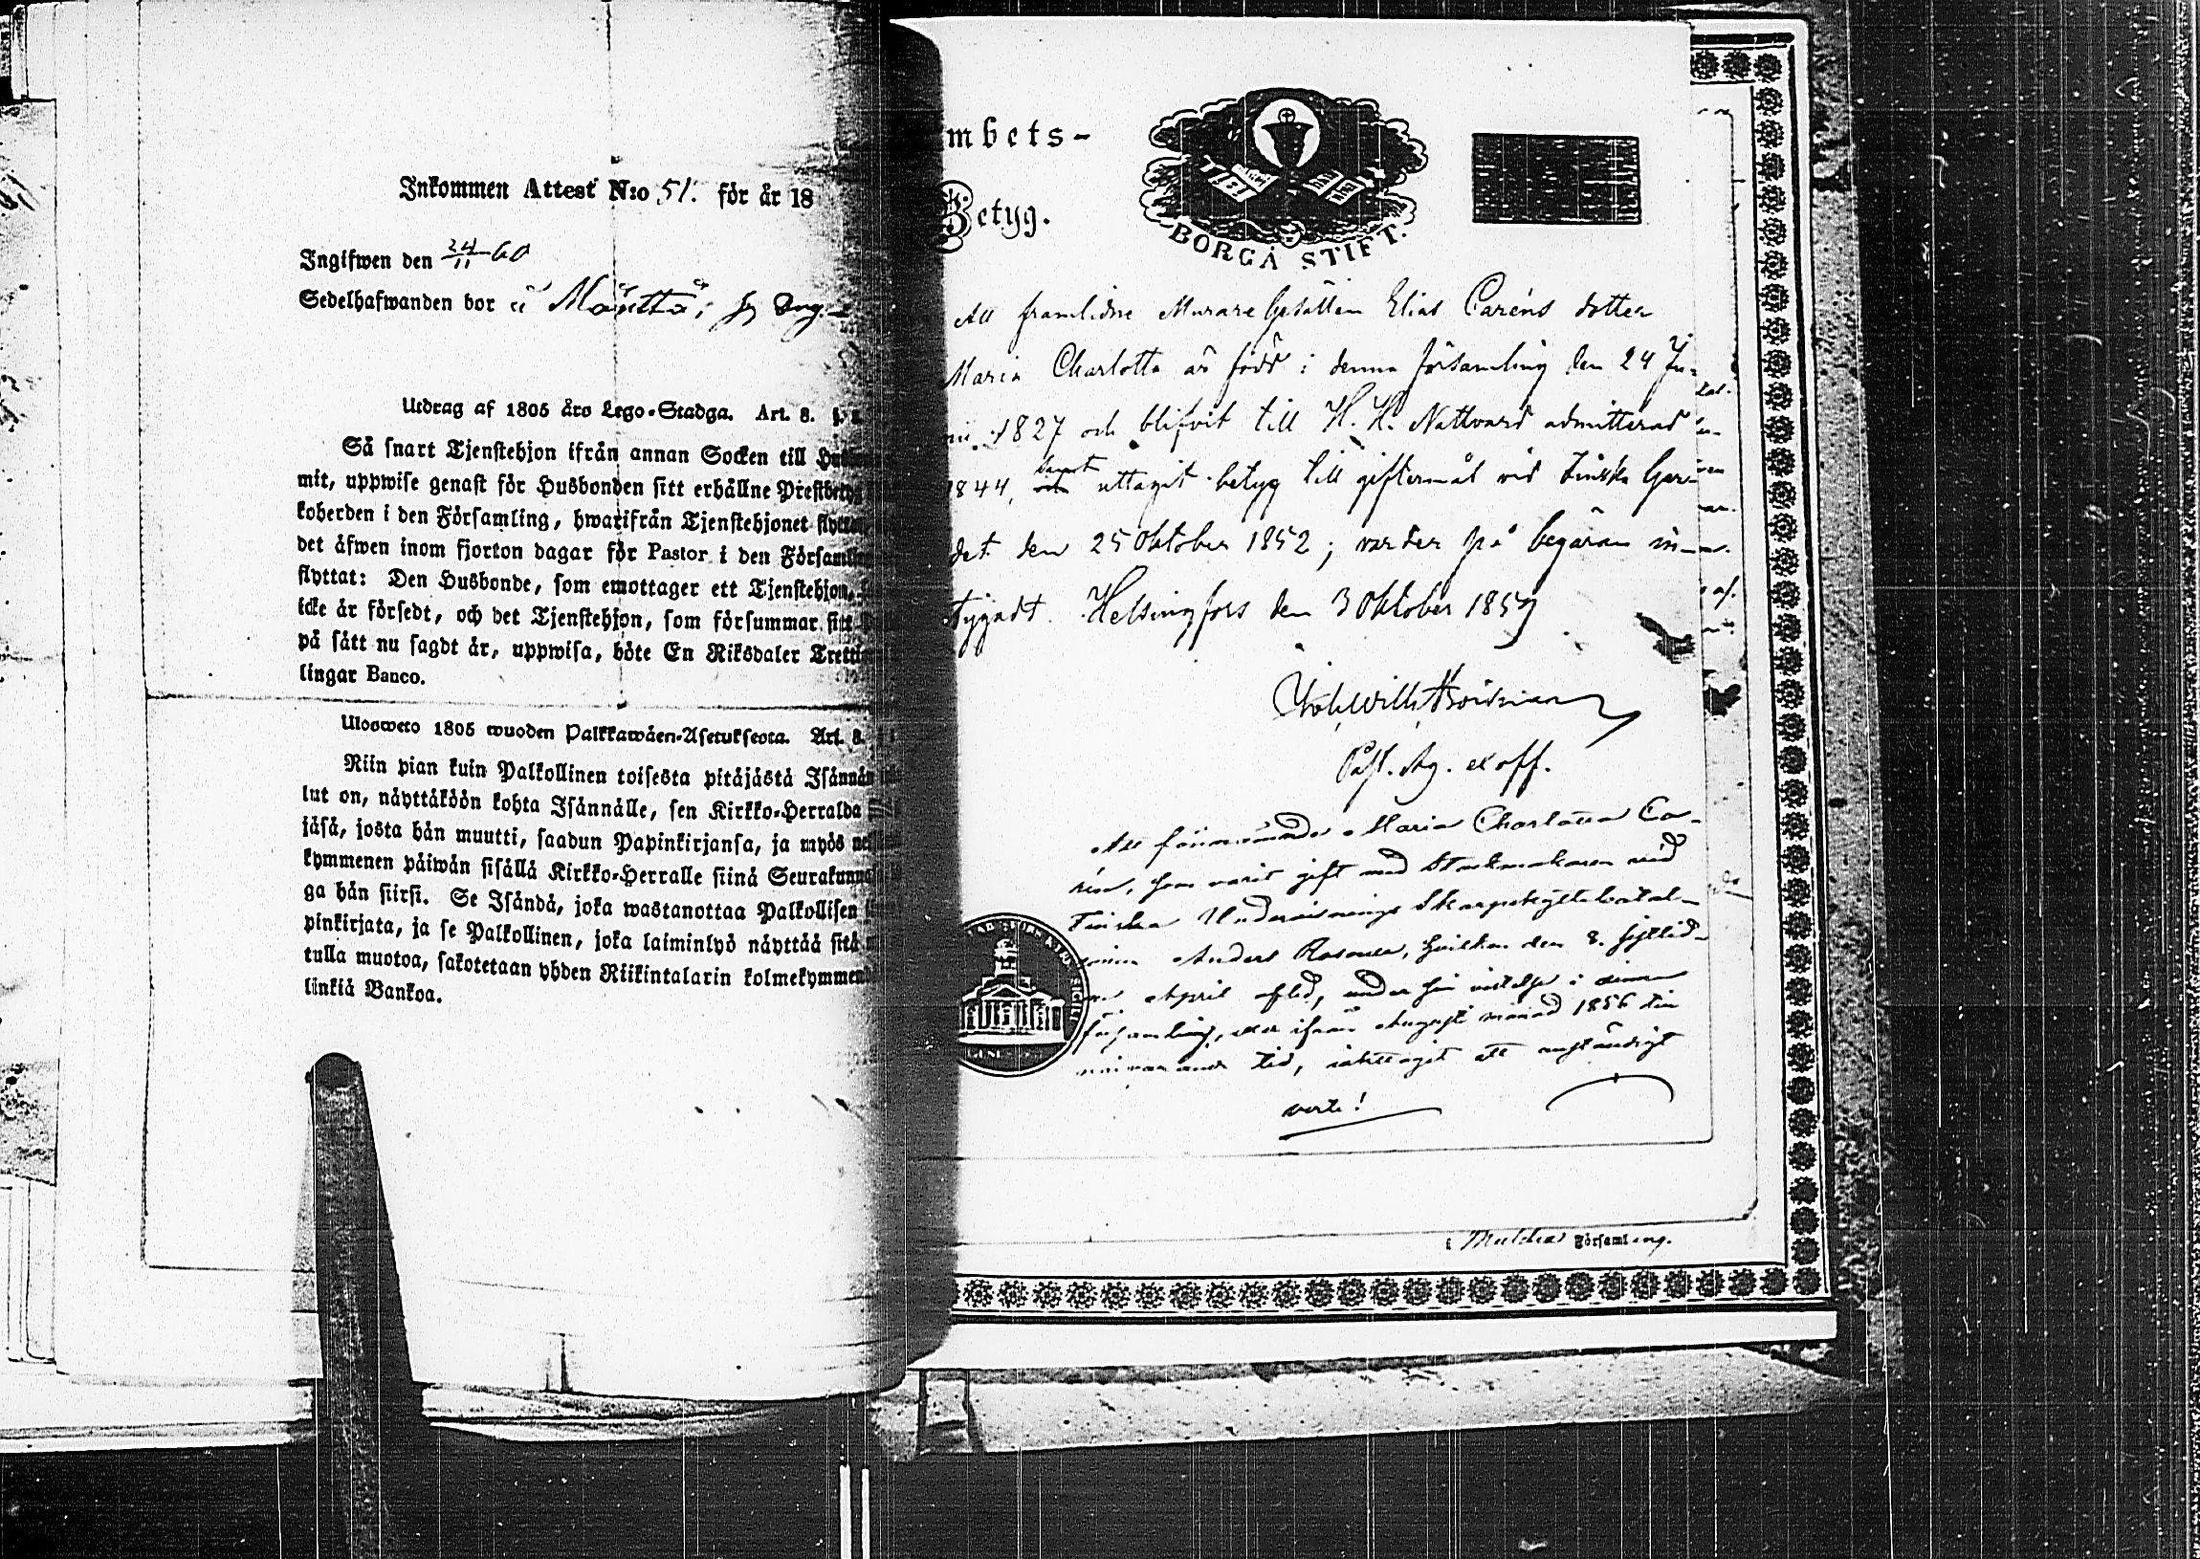 Inkommen Attest N:o 51. för år 18
Ingifwen den 24/11 60
Sedelhafwanden bor å Mänttä;
Utdrag af 1805 års Lego-Stadga. Art. 8. §.
Så snart Tjenstehjon ifrån annan Socken till
mit, uppwise genast för Husbonden sitt erhållne Prestbetyg
koherden i den Församling, hwarifrån Tjenstehjonet flytta
det åfwen inom fjorton dagar för Pastor i den Församlin
flyttat: Den Husbonde, som emottager ett Tjenstehjon,
icke är försedt, och det Tjenstehjon, som försummar sitt
på sätt nu sagdt är, uppwisa, böte En Riksdaler Tretti
lingar Banco.
Ulosweto 1805 wuoden Palkkawäen-Asetuksesta. Art. 8.
Niin pian kuin Palkollinen toisesta pitäjästä Isännän
lut on, näyttäköön kohta Isännälle, sen Kirkko-Herralda
jäsä, josta hän muutti, saadun Papinkirjansa, ja myös
kymmenen päiwän sisällä Kirkko-Herralle siinä Seurakunna
ga hän siirsi. Se Isändä, joka wastanottaa Palkollisen
pinkirjata, ja se Palkollinen, joka laiminlyö näyttää sitä
tulla muotoa, sakotetaan yhden Riikintalarin kolmekymmen
linkiä Bankoa.
mbets-
Betyg.
BORGÅ STIFT.
Att framlidne Murare Gesällen Elias Caréns dotter
Maria Charlotta är född i denna församling den 24 Ju-
nii 1827 och blifvit till H. H. Nattvard admitterad
1844, uttagit betyg till giftermål vid Finska Gar-
det den 25 Oktober 1852; varder på begäran
tygadt. Helsingfors den 3 Oktober 1859
Past. Adj. ex off.
Att förenämnda Maria Charlotta Ca-
rén, som varit gift med Stockmakaren vid
Finska Undervisnings Skarpskyttebatal-
jonen Anders Rosone, hvilken den 8. sistlid-
ne April afled, under sin vistelse i denna
församling, ifrån Augusti månad 1856 till
närvarande tid, iakttagit ett anständigt
verte!
i Multia Församling.